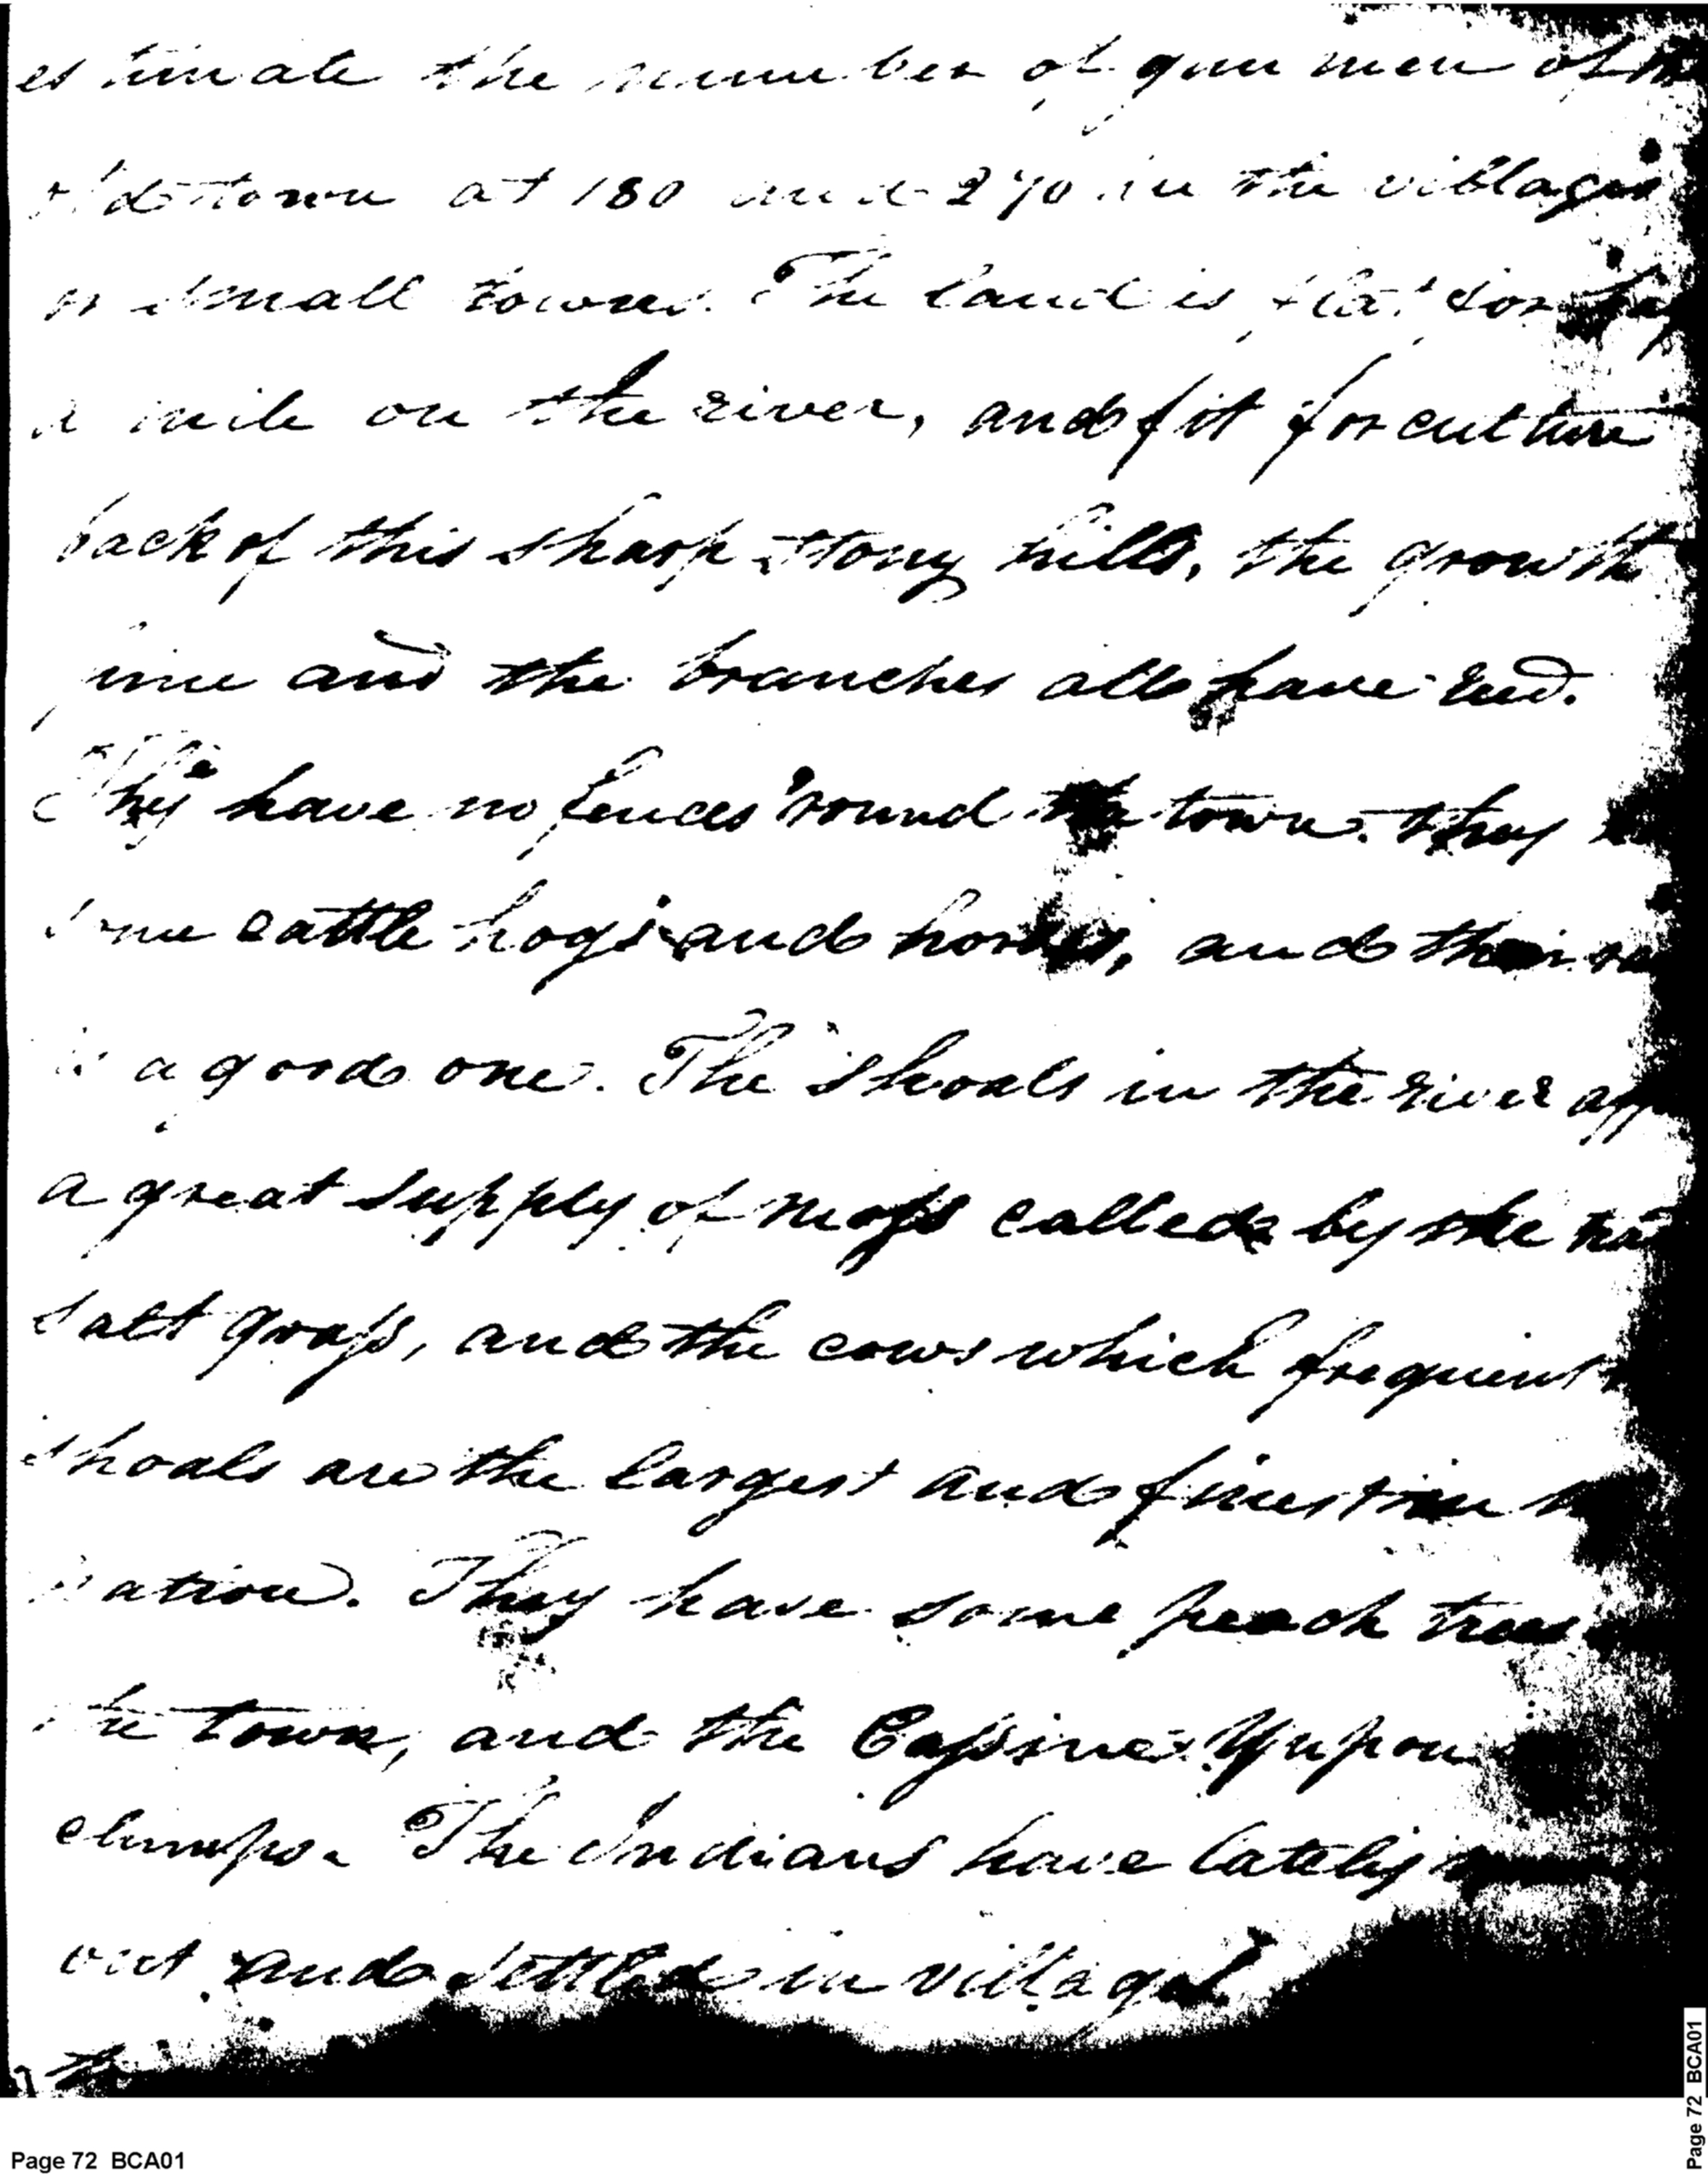 estimate the number of gun men of the
old town at 180 and 270 in the villages
or small towns. The land is flat for half
a mile on the river, and fit for culture
back of this sharp stony hills, the growth
pine and the branches all have reed.
They have no fences 'round the town. they
some cattle hogs and horses, and their
is a good one. The shoals in the river
a great supply of moss called by the
salt grass, and the cows which frequent
shoals are the largest and finest in
nation. They have some peach trees
the town, and the Cassine Yupon
clumps. The Indians have lately
out and settled in villages
Page 72 BCA01
Page 72 BCA01